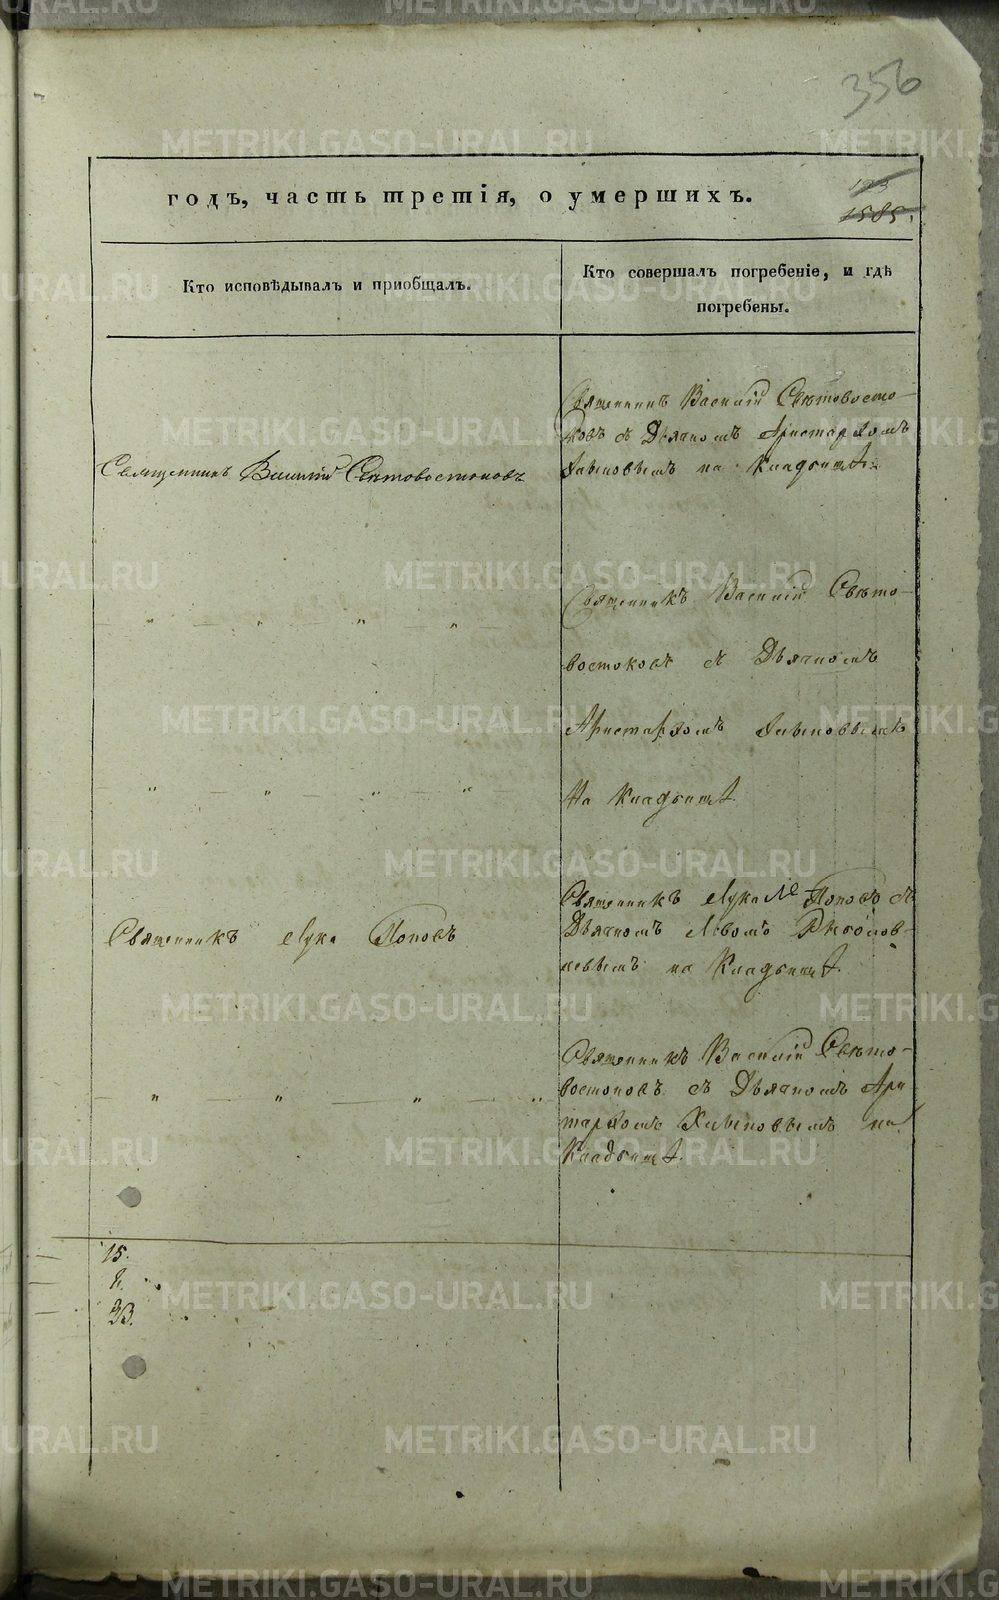 356
годъ, часть третія, о умершихъ.
193
1585.
Кто исповѣдывалъ и пріобщалъ.
Кто совершалъ погребеніе, и гдѣ
погребены.
Священникъ Василій Свѣтовостоковъ
Священникъ Василій Свѣтовосто-
ковъ съ Дьячкомъ Аристархомъ
на кладбищѣ.
" " " "
Священникъ Василій Свѣто-
востоковъ съ Дьячкомъ
Аристархомъ
" " " "
На кладбищѣ.
Священникъ Лука Поповъ
Священникъ Лука Поповъ съ
Дьячкомъ Львомъ
на Кладбищѣ.
" " " "
Священникъ Василій Свѣто-
востоковъ съ Дьячкомъ Ари
тархомъ на
Кладбищѣ.
15.
2.
33.
METRIKI.GASO-URAL.RU